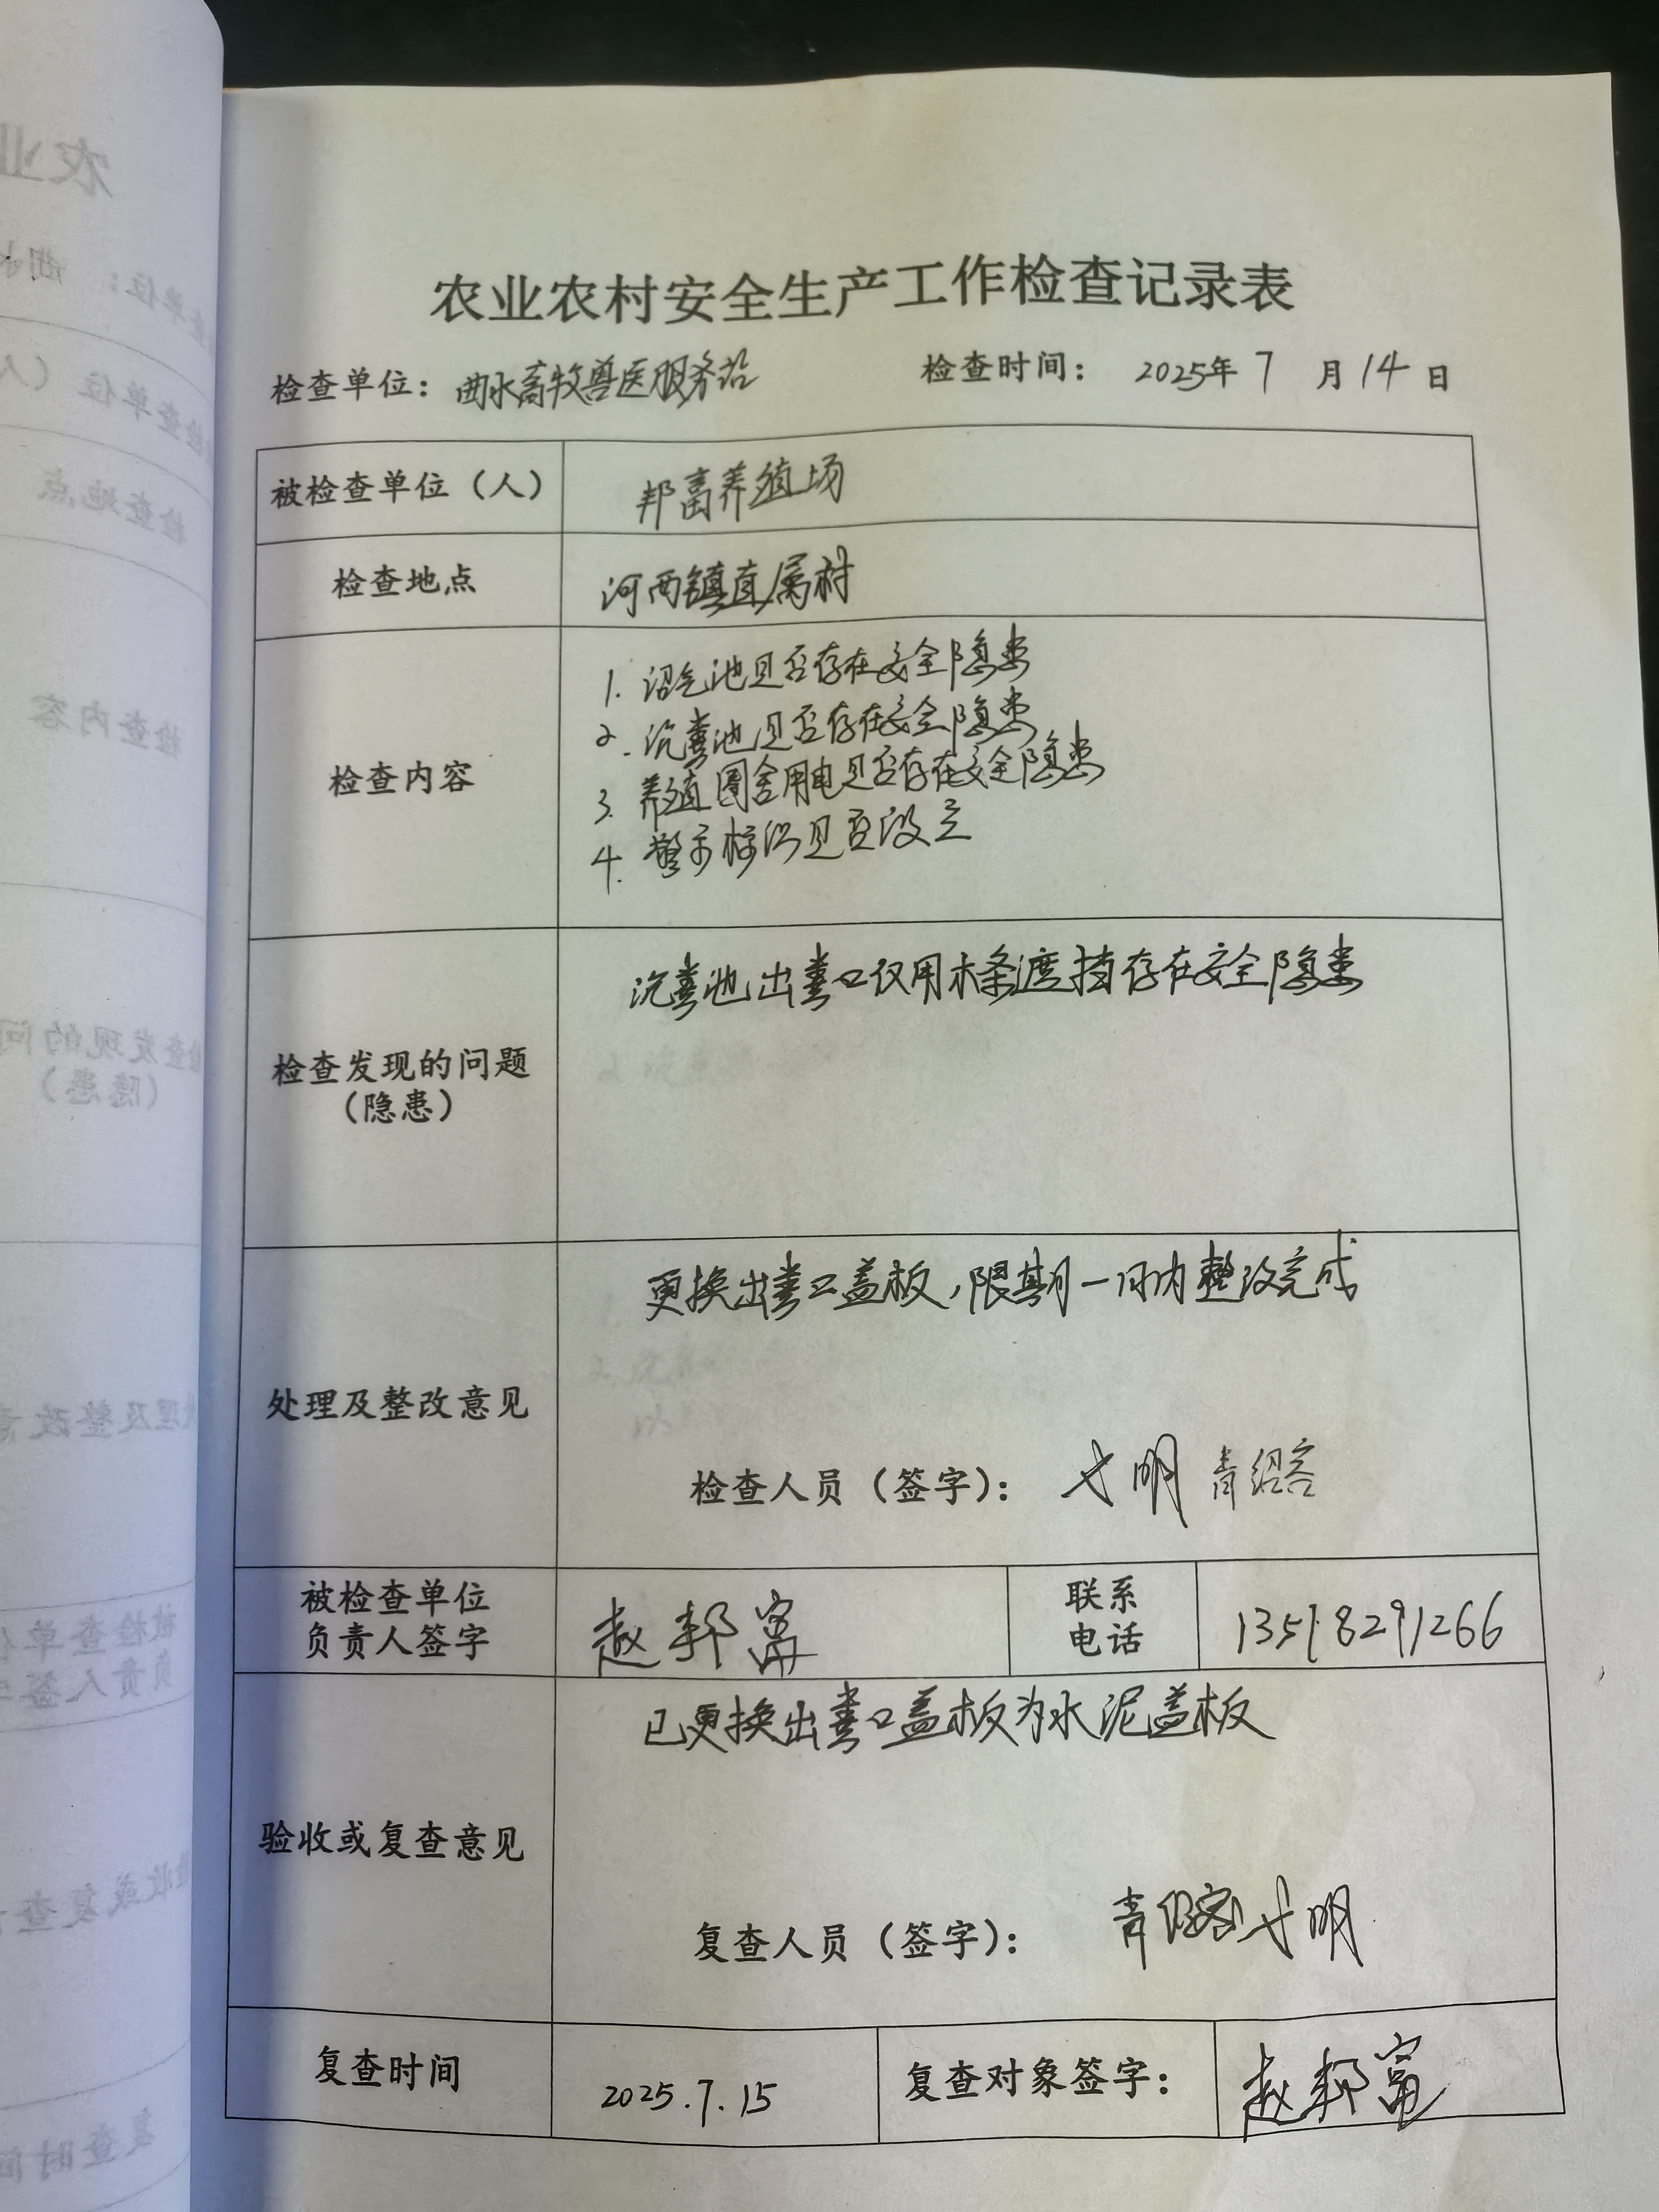 农业农村安全生产工作检查记录表
检查单位：曲水畜牧兽医服务站 检查时间： 2025年 7 月 14 日
被检查单位（人） 邦畜养殖场
检查地点 河西镇直属村
检查内容
1. 沼气池是否存在安全隐患
2. 沉粪池是否存在安全隐患
3. 养殖圈舍用电是否存在安全隐患
4. 警示标识是否设立
检查发现的问题
（隐患）
沉粪池出粪口仅用木条遮挡存在安全隐患
处理及整改意见
更换出粪口盖板，限期一日内整改完成
检查人员（签字）： 明 青绍容
被检查单位
负责人签字
赵邦富
联系
电话
13518291266
验收或复查意见
已更换出粪口盖板为水泥盖板
复查人员（签字）： 青绍容 明
复查时间 2025.7.15 复查对象签字： 赵邦富